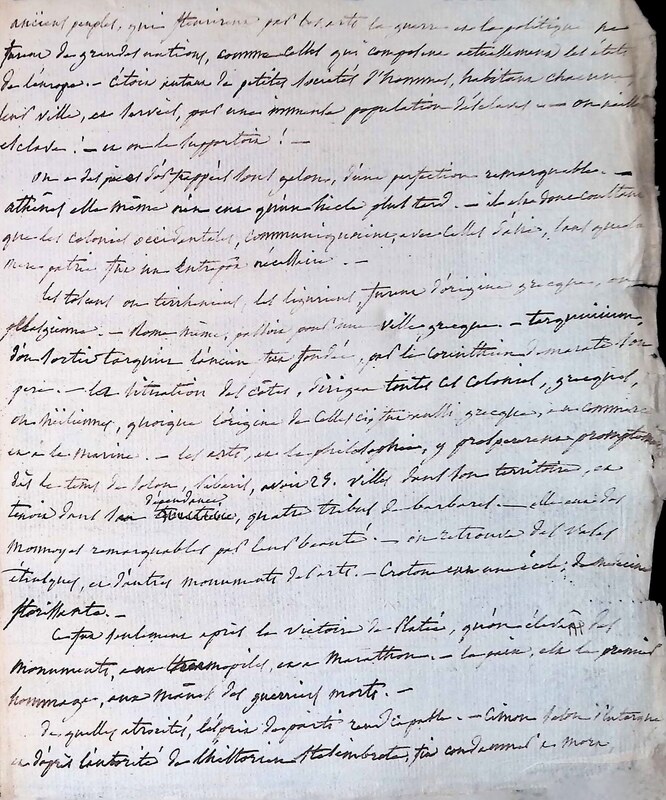 anciens peuples, qui fleurirent par les arts la guerre et la politique ne
furent de grandes nations, comme celles qui composent actuellement les états
de l'europe. - c'étoit autant de petites sociétés d'hommes, habitant chacune
leur ville, et servies, par une immense population d'esclaves - on
esclave! - et on le supportoit! -
on a des pieces d'or frappées sous gelon, d'une perfection remarquable. -
athènes elle même n'en eut qu'un siecle plus tard. - il est donc
que les colonies occidentales, communiquoient, avec celles d'asie, sans que la
mere patrie fut un entrepôt necessaire. -
les toscans ou tirrheniens, les liguriens, furent d'origine grecque, ou
pelasgienne. - Rome même, passoit pour une ville grecque. - tarquinium,
d'ou sortit tarquin l'ancien fut fondée, par le corinthien demarate son
pere. - la situation des côtes, dirigea toutes ces colonies, grecques,
ou siciliennes, quoique l'origine de celles ci, fut aussi grecque, au commerce
et à la marine. - les arts, et la philosophie, y prospererent promptement
dès le tems de solon, sibaris, avoit 25. villes dans son territoire, et
tenoit dans sa dépendance, quatre tribus de barbares. - elle eut des
monnoyes remarquables par leur beauté. - on retrouve des vases
étrusques, et d'autres monumens des arts. - Crotone eut une école, de médecine
florissante. -
Ce fut seulement après la victoire de Platée, qu'on éleva des
monuments, aux thermopiles, et à marathon. - la paix, est le premier
hommage, aux mânes des guerriers morts. -
de quelles atrocités, l'esprit de parti rend capable. - Cimon selon plutarque
et d'après l'autorité de l'historien Stesimbrote, fut condamné à mort